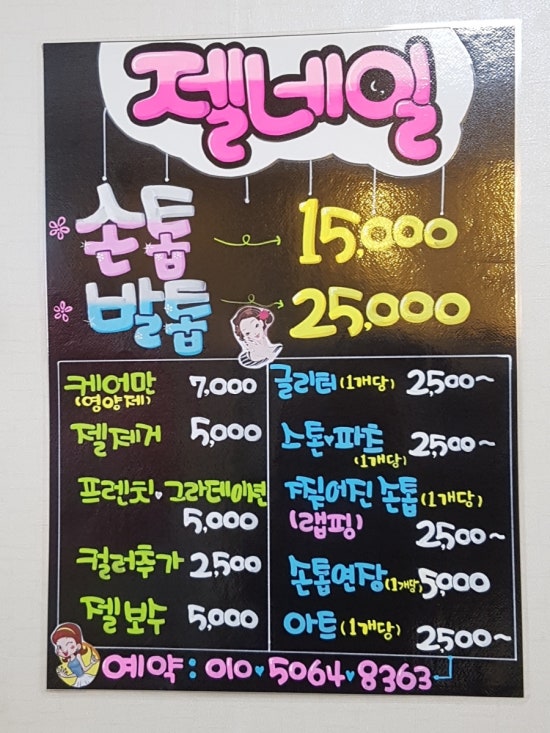 젤네일
손톱 15,000
발톱 25,000
케어만 7,000
(영양제)
젤제거 5,000
프렌치♥그라데이션
5,000
컬러추가 2,500
젤보수 5,000
글리터(1개당) 2,500~
스톤♥파츠 2,500~
(1개당)
찢어진 손톱(1개당)
(랩핑) 2,500~
손톱연장(1개당) 5,000
아트(1개당) 2,500~
예약: 010♥5064♥8363